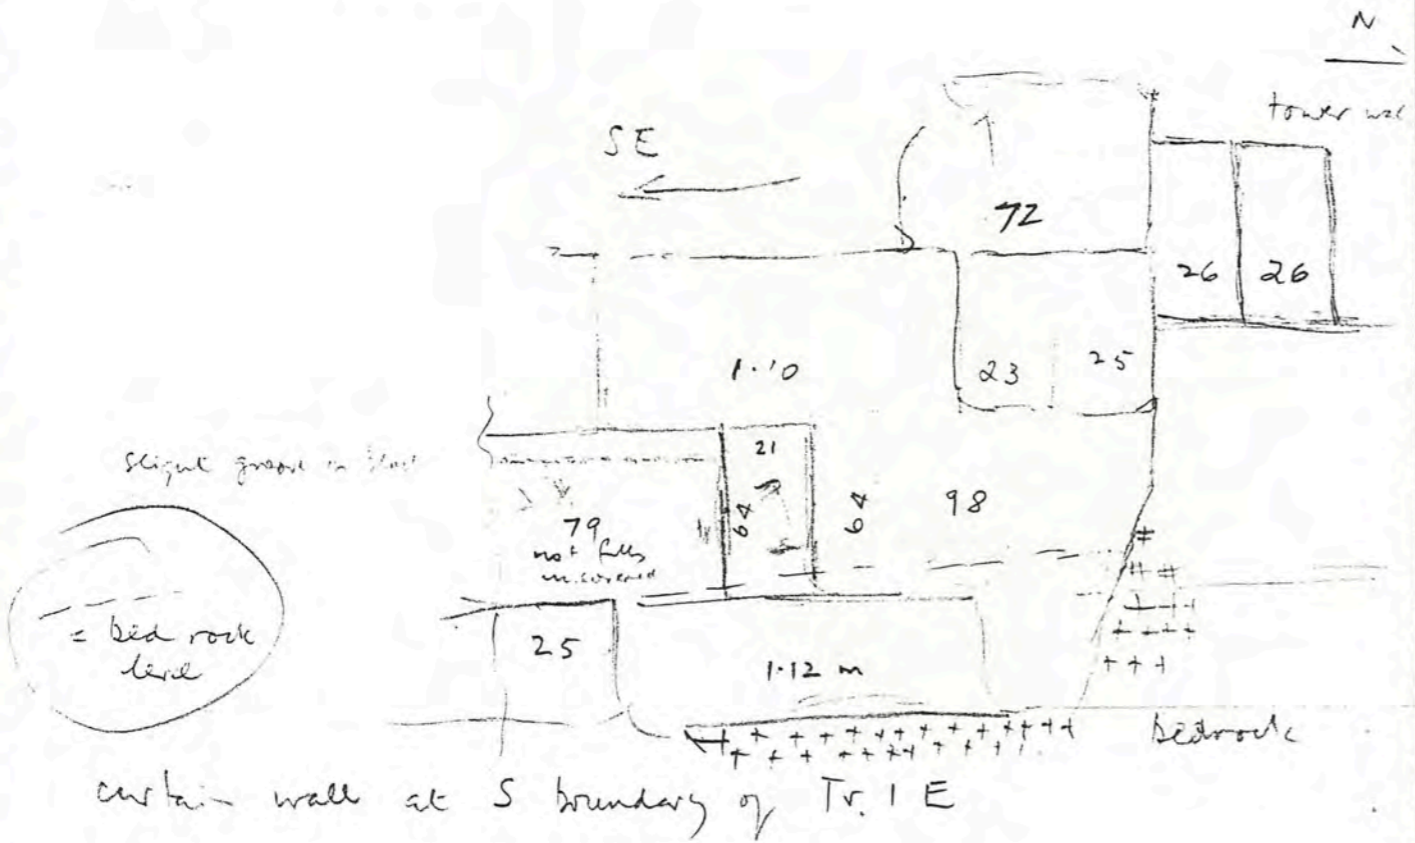 N
tower
SE
72
26 26
1.10
23 25
21
slight groove in
64 64 98
79
not fully
uncovered
= bed rock
level
25
1.12 m
bedrock
curtain wall at S boundary of Tr. 1 E